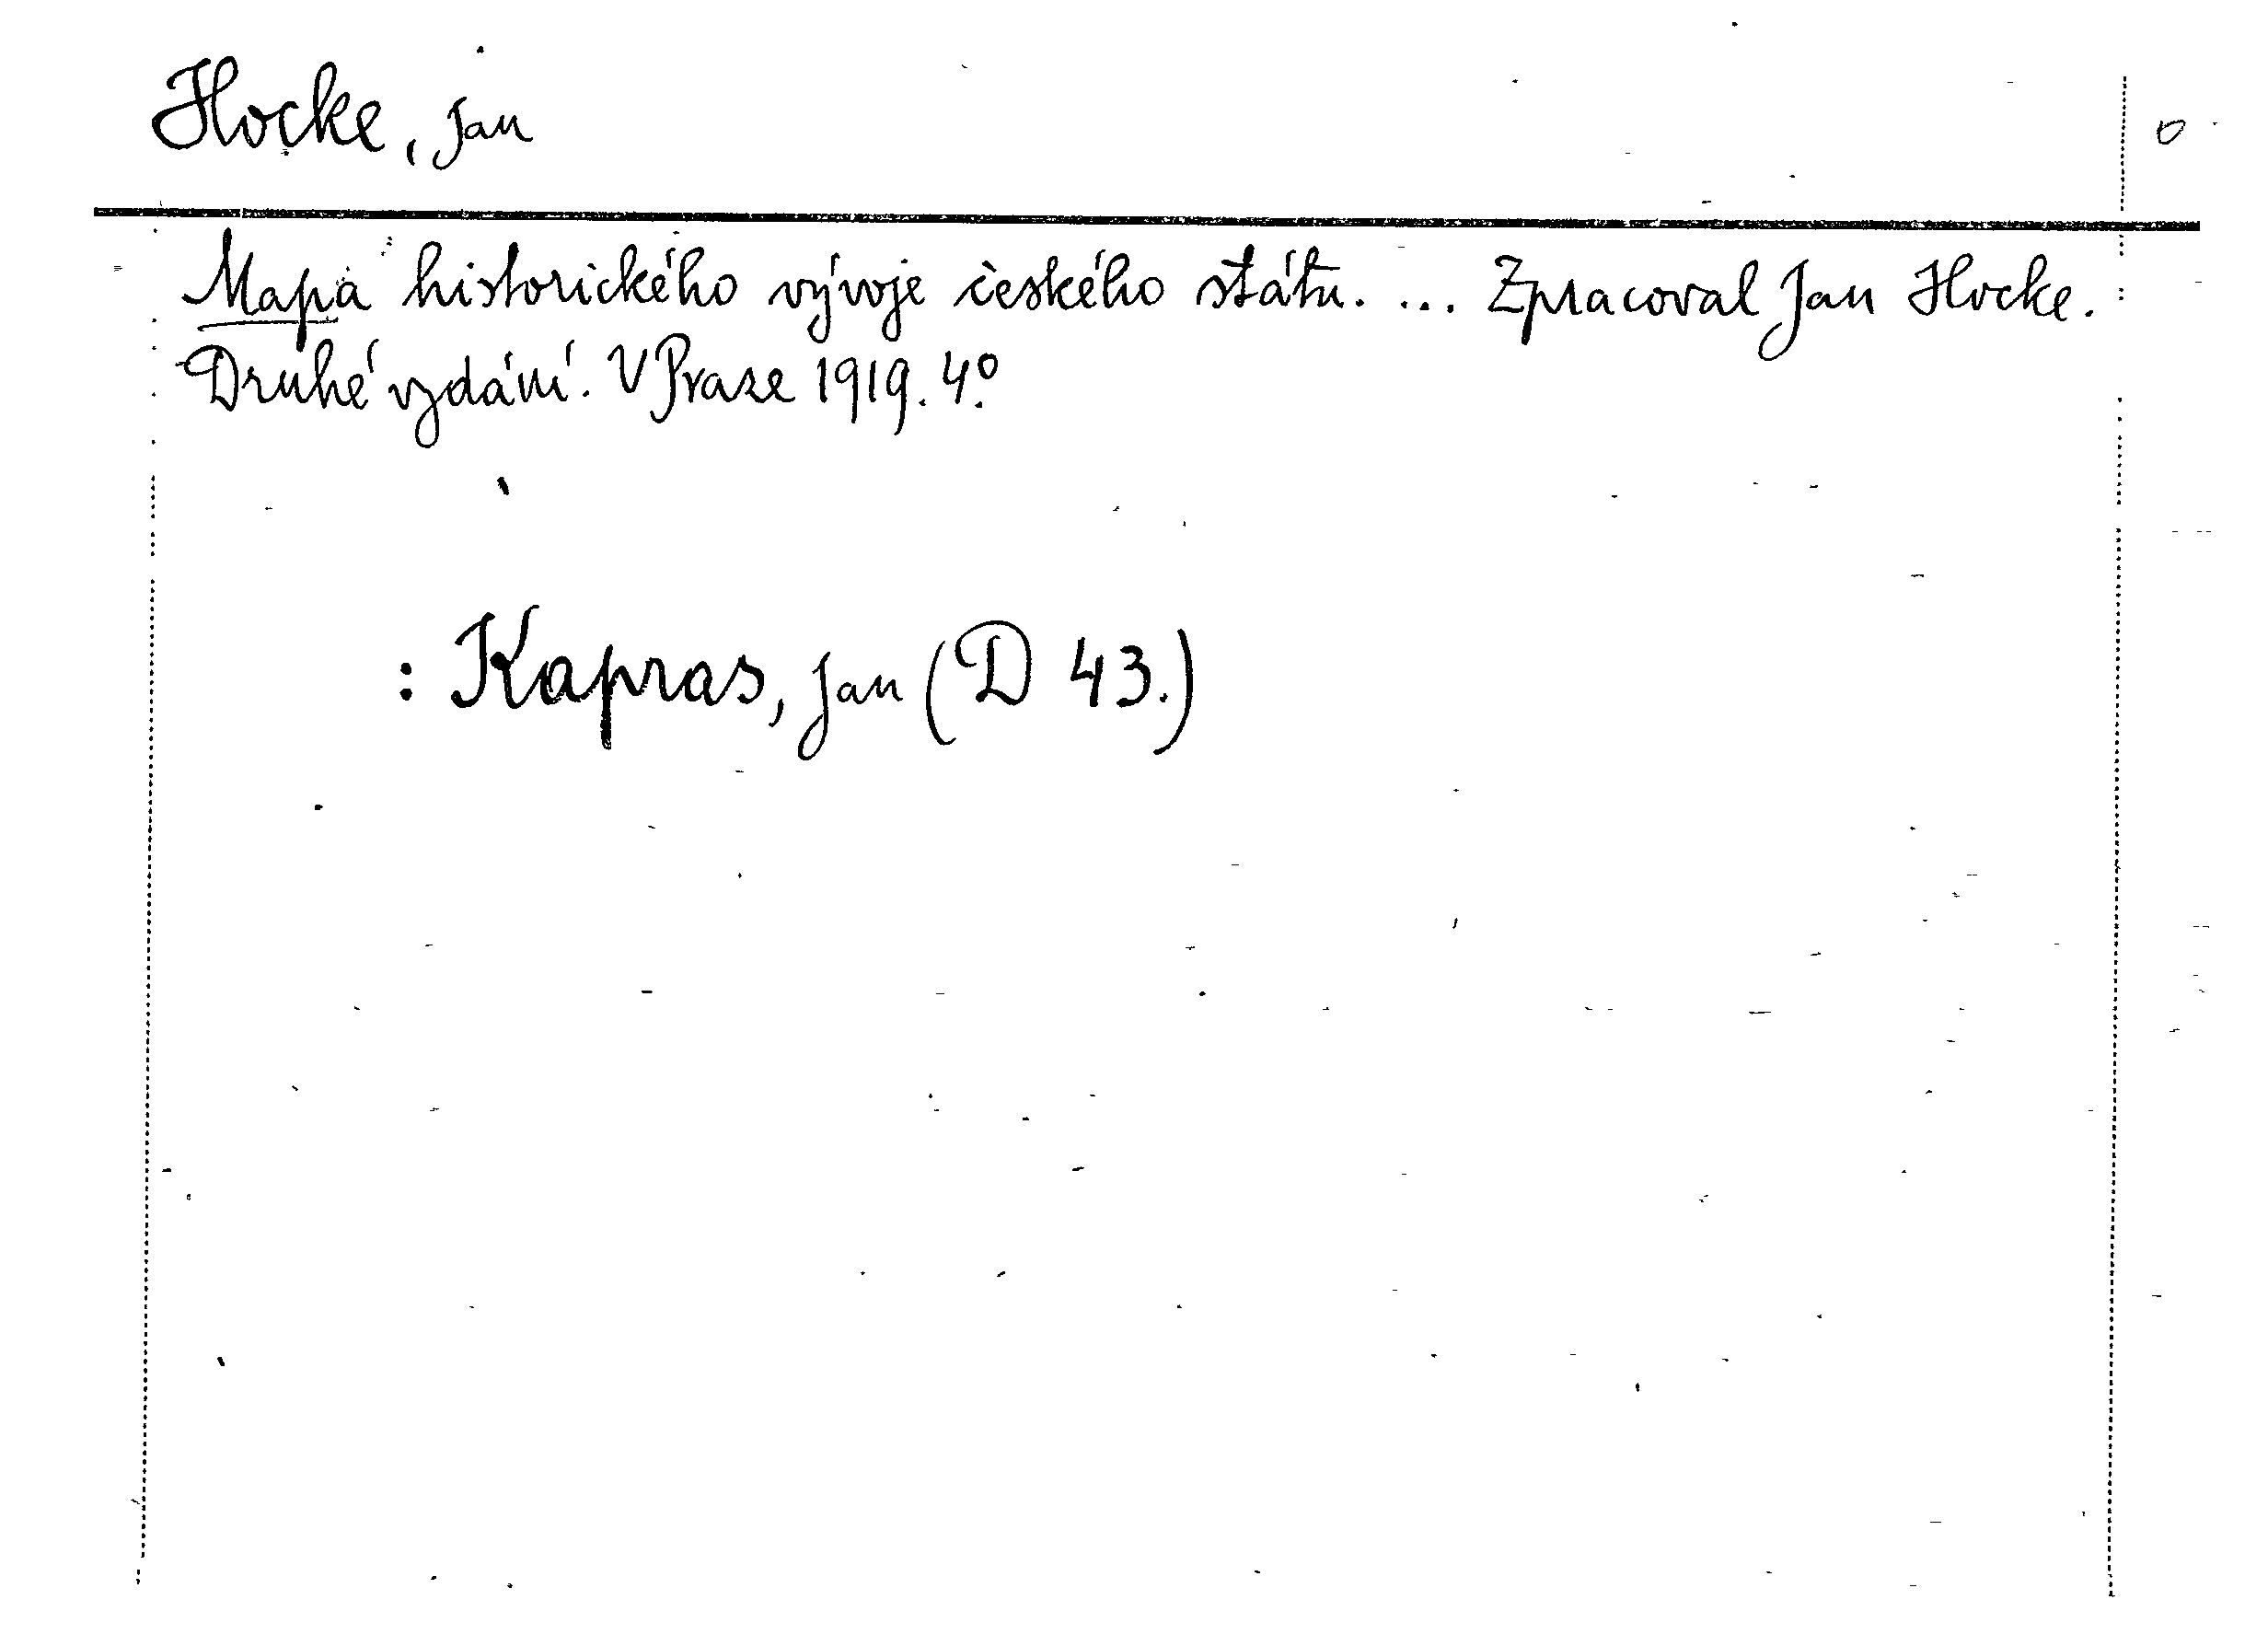 Hocke, Jan
Mapa historického vývoje českého státu. ... Zpracoval Jan Hocke.
Druhé vydání. V Praze 1919. 4º.
: Kapras, Jan (D 43.)